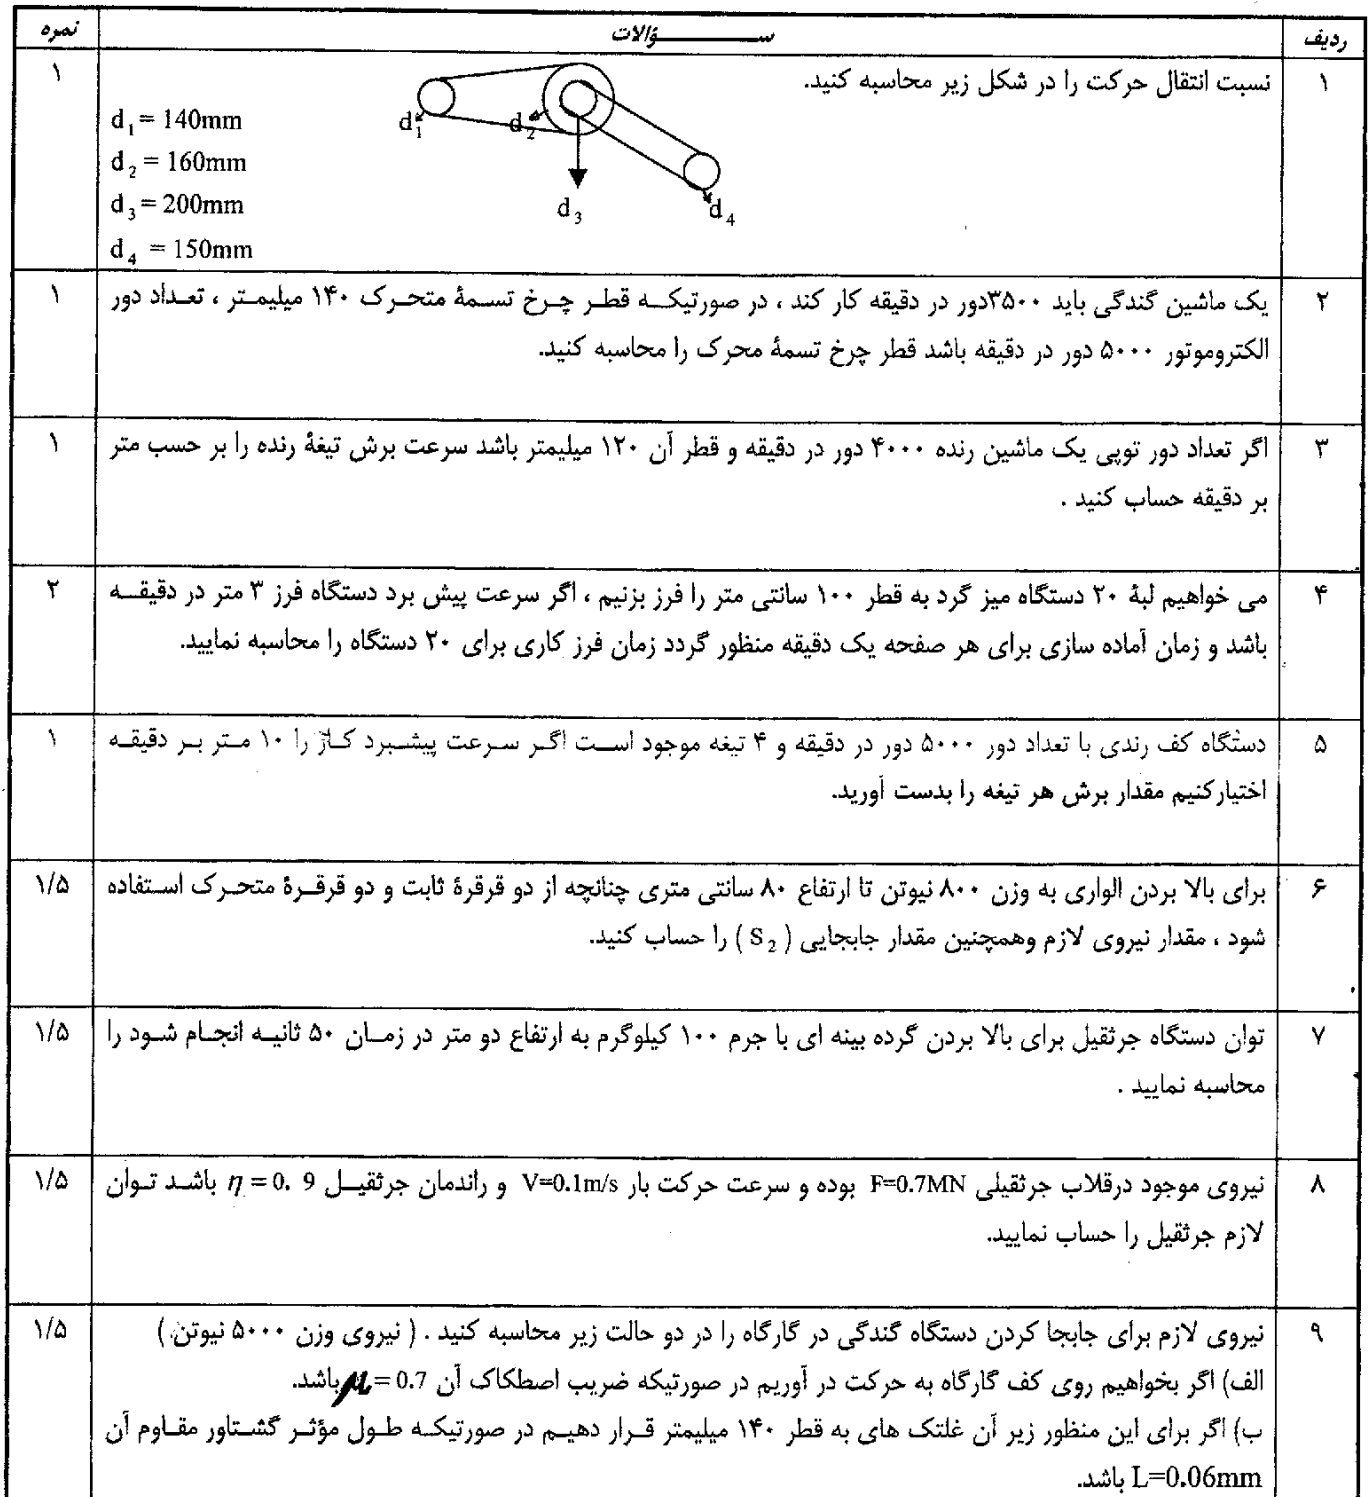 ردیف
ســـــــــؤالات
نمره
۱
نسبت انتقال حرکت را در شکل زیر محاسبه کنید.
۱
d1 = 140mm
d2 = 160mm
d3 = 200mm
d4 = 150mm
d1
d2
d3
d4
۲
یک ماشین گندگی باید ۳۵۰۰دور در دقیقه کار کند ، در صورتیکه قطر چرخ تسمۀ متحرک ۱۴۰ میلیمتر ، تعداد دور
الکتروموتور ۵۰۰۰ دور در دقیقه باشد قطر چرخ تسمۀ محرک را محاسبه کنید.
۱
۳
اگر تعداد دور توپی یک ماشین رنده ۴۰۰۰ دور در دقیقه و قطر آن ۱۲۰ میلیمتر باشد سرعت برش تیغۀ رنده را بر حسب متر
بر دقیقه حساب کنید .
۱
۴
می خواهیم لبۀ ۲۰ دستگاه میز گرد به قطر ۱۰۰ سانتی متر را فرز بزنیم ، اگر سرعت پیش برد دستگاه فرز ۳ متر در دقیقه
باشد و زمان آماده سازی برای هر صفحه یک دقیقه منظور گردد زمان فرز کاری برای ۲۰ دستگاه را محاسبه نمایید.
۲
۵
دستگاه کف رندی با تعداد دور ۵۰۰۰ دور در دقیقه و ۴ تیغه موجود است اگر سرعت پیشبرد کار را ۱۰ متر بر دقیقه
اختیارکنیم مقدار برش هر تیغه را بدست آورید.
۱
۶
برای بالا بردن الواری به وزن ۸۰۰ نیوتن تا ارتفاع ۸۰ سانتی متری چنانچه از دو قرقرۀ ثابت و دو قرقرۀ متحرک استفاده
شود ، مقدار نیروی لازم وهمچنین مقدار جابجایی ( S2 ) را حساب کنید.
۱/۵
۷
توان دستگاه جرثقیل برای بالا بردن گرده بینه ای با جرم ۱۰۰ کیلوگرم به ارتفاع دو متر در زمان ۵۰ ثانیه انجام شود را
محاسبه نمایید .
۱/۵
۸
نیروی موجود درقلاب جرثقیلی F=0.7MN بوده و سرعت حرکت بار V=0.1m/s و راندمان جرثقیل η = 0. 9 باشد توان
لازم جرثقیل را حساب نمایید.
۱/۵
۹
نیروی لازم برای جابجا کردن دستگاه گندگی در گارگاه را در دو حالت زیر محاسبه کنید . ( نیروی وزن ۵۰۰۰ نیوتن )
الف) اگر بخواهیم روی کف گارگاه به حرکت در آوریم در صورتیکه ضریب اصطکاک آن μ = 0.7 باشد.
ب) اگر برای این منظور زیر آن غلتک های به قطر ۱۴۰ میلیمتر قرار دهیم در صورتیکه طول مؤثر گشتاور مقاوم آن
L=0.06mm باشد.
۱/۵